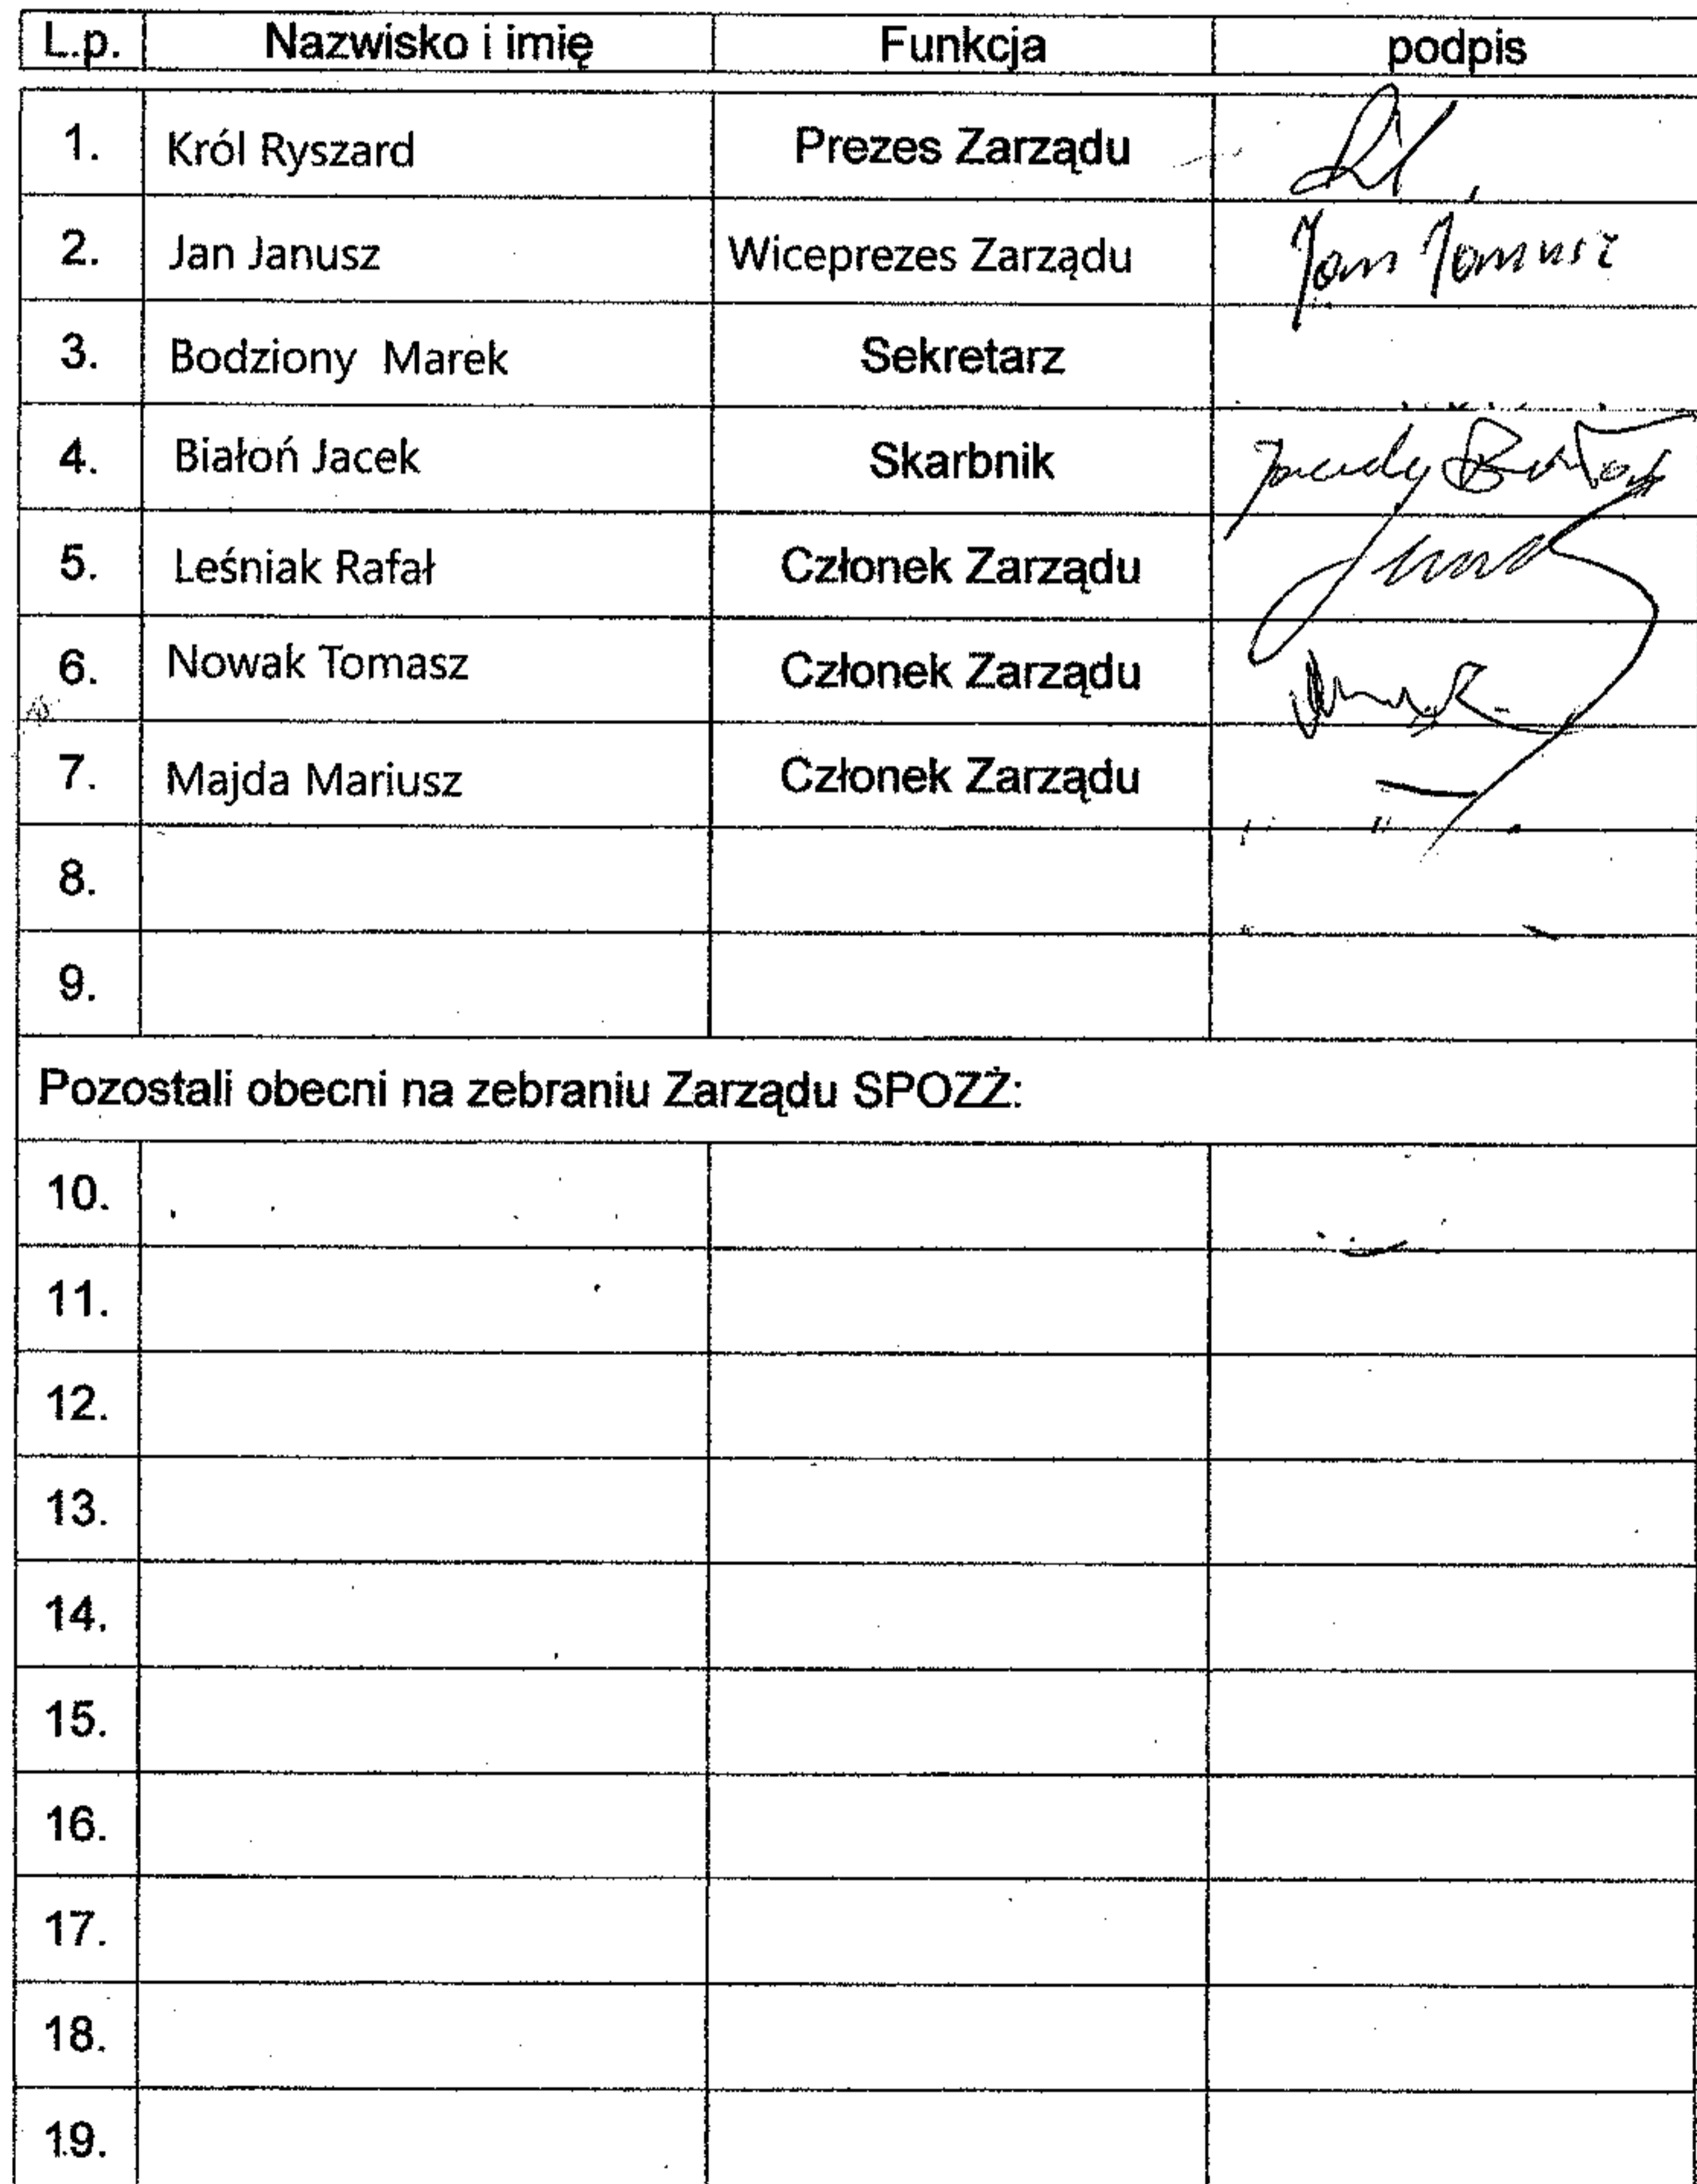 L.p. Nazwisko i imię Funkcja podpis
1. Król Ryszard Prezes Zarządu
2. Jan Janusz Wiceprezes Zarządu Jan Janusz
3. Bodziony Marek Sekretarz
4. Białoń Jacek Skarbnik
5. Leśniak Rafał Członek Zarządu
6. Nowak Tomasz Członek Zarządu
7. Majda Mariusz Członek Zarządu
8.
9.
Pozostali obecni na zebraniu Zarządu SPOZŻ:
10.
11.
12.
13.
14.
15.
16.
17.
18.
19.